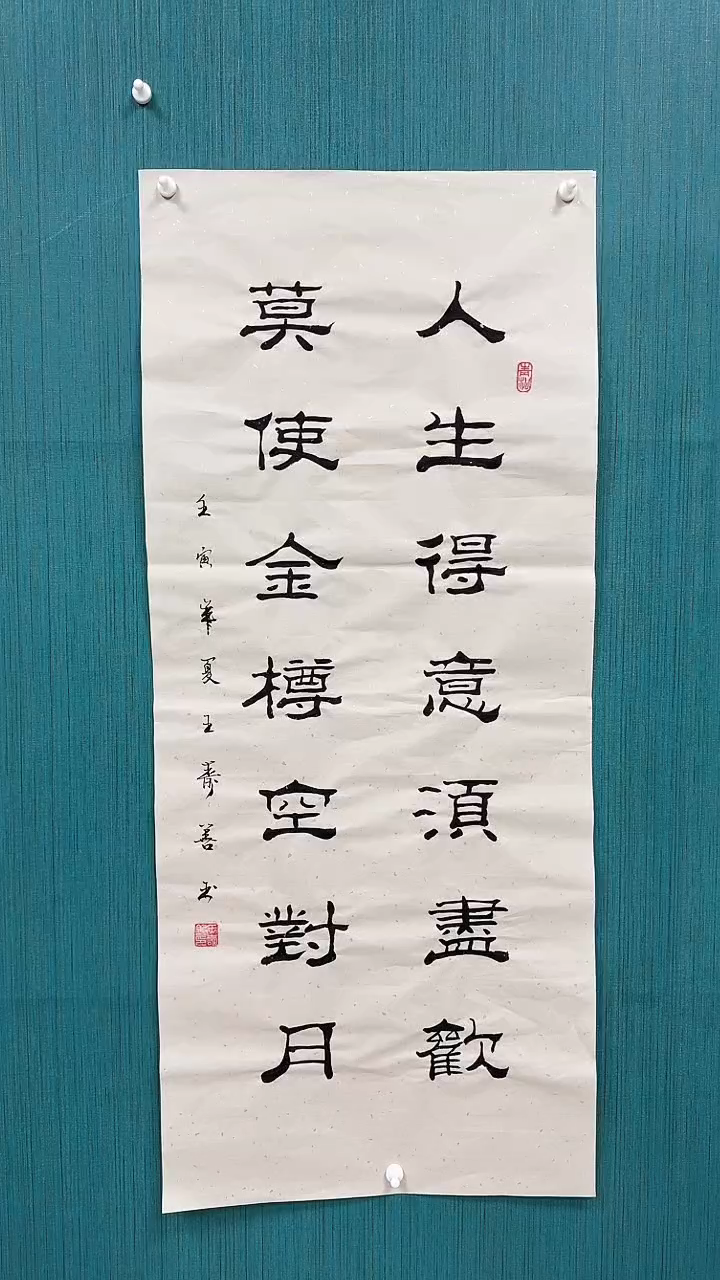 人生得意須盡歡
莫使金樽空對月
壬寅年夏王壽善书